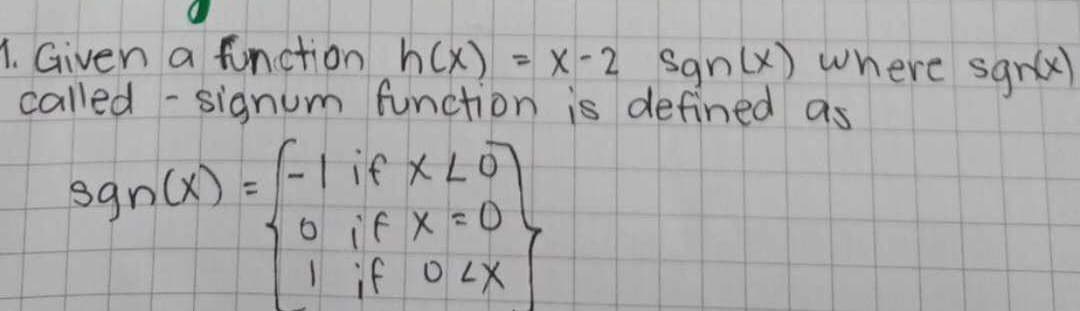 1. Given a function h(x) = x - 2 sgn(x) where sgn(x)
called - signum function is defined as
sgn(x) = { -1 if x < 0
0 if x = 0
1 if 0 < x }